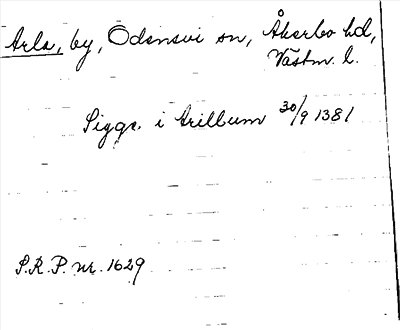 Arla, by, Odensvi sn, Åkerbo hd,
Västm. l.
Sigge i Arillum 30/9 1381
S.R.P. nr. 1629